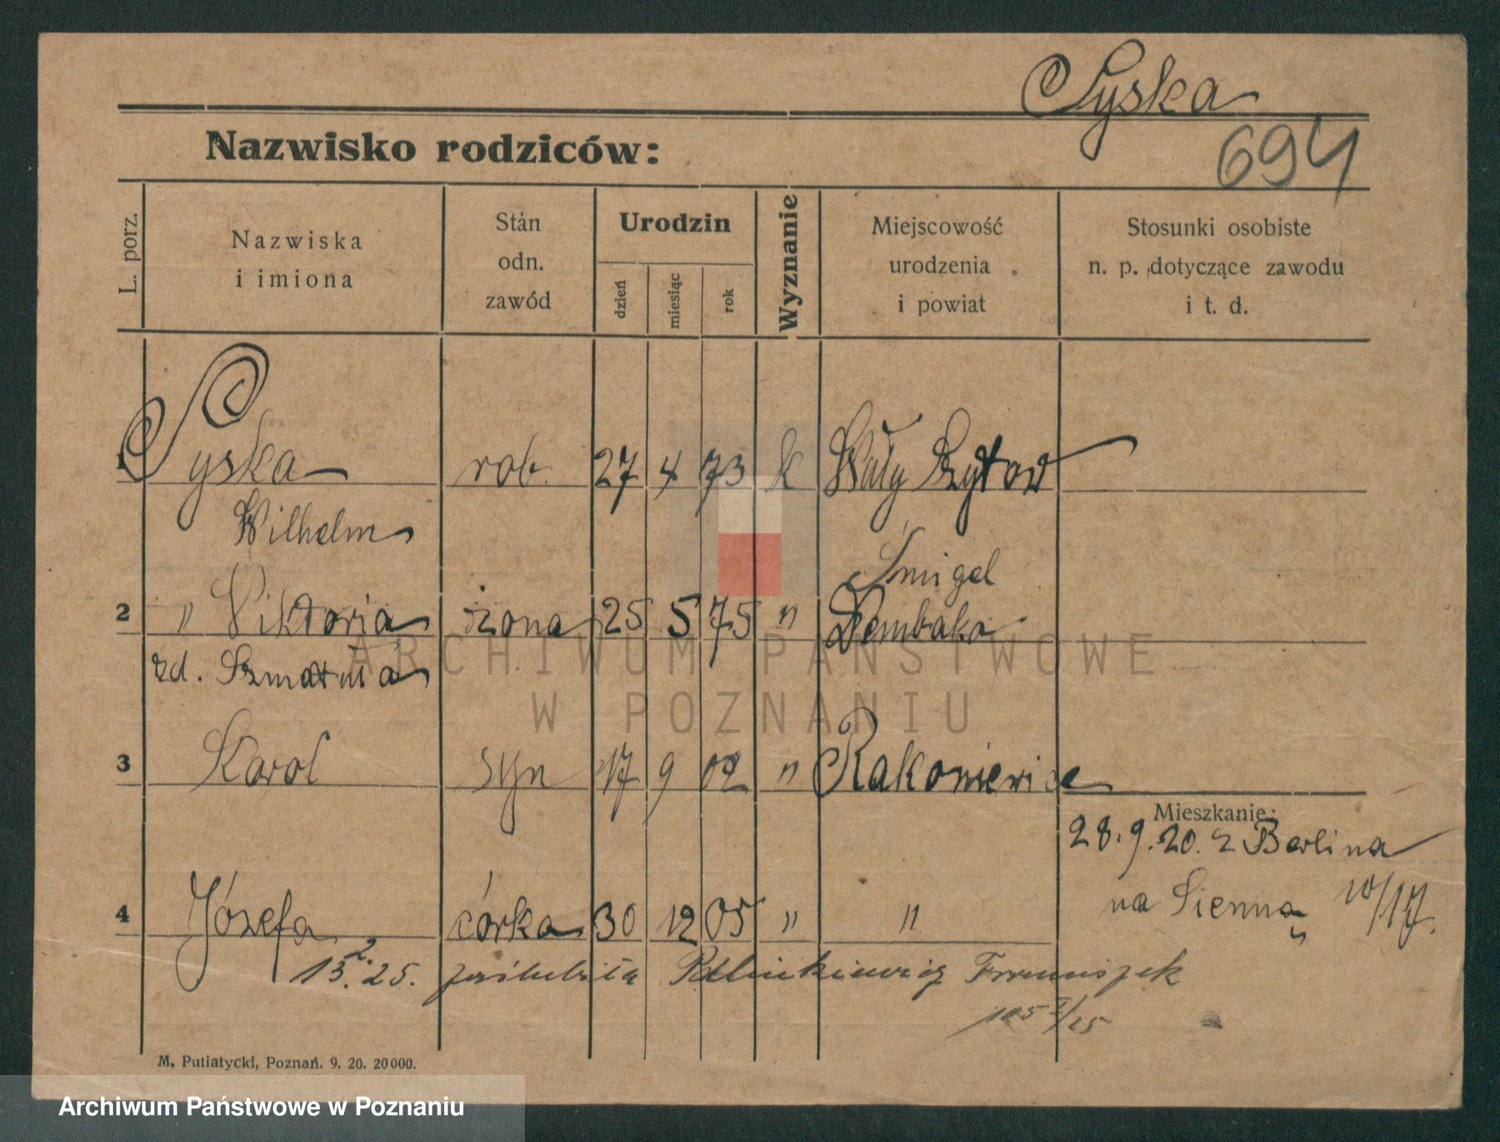 Syska
694
Nazwisko rodziców:
L. porz.
Nazwiska
i imiona
Stán
odn.
zawód
Urodzin
dzień
miesiąc
rok
Wyznanie
Miejscowość
urodzenia
i powiat
Stosunki osobiste
n. p. dotyczące zawodu
i t. d.
1 Syska rob. 27 4 73 k
Wilhelm
Śmigel
2 " Viktoria żona 25 5 75 " Dembako
zd.
3 Karol syn 17 9 02 " Rakoniewice
Mieszkanie:
28.9.20. z Berlina
na Sienną 10/17.
4 Józefa córka 30 12 05 " "
13.2.25. zaślubiła Franciszek
M. Putiatycki, Poznań. 9. 20. 20000.
ARCHIWUM PAŃSTWOWE
W POZNANIU
Archiwum Państwowe w Poznaniu